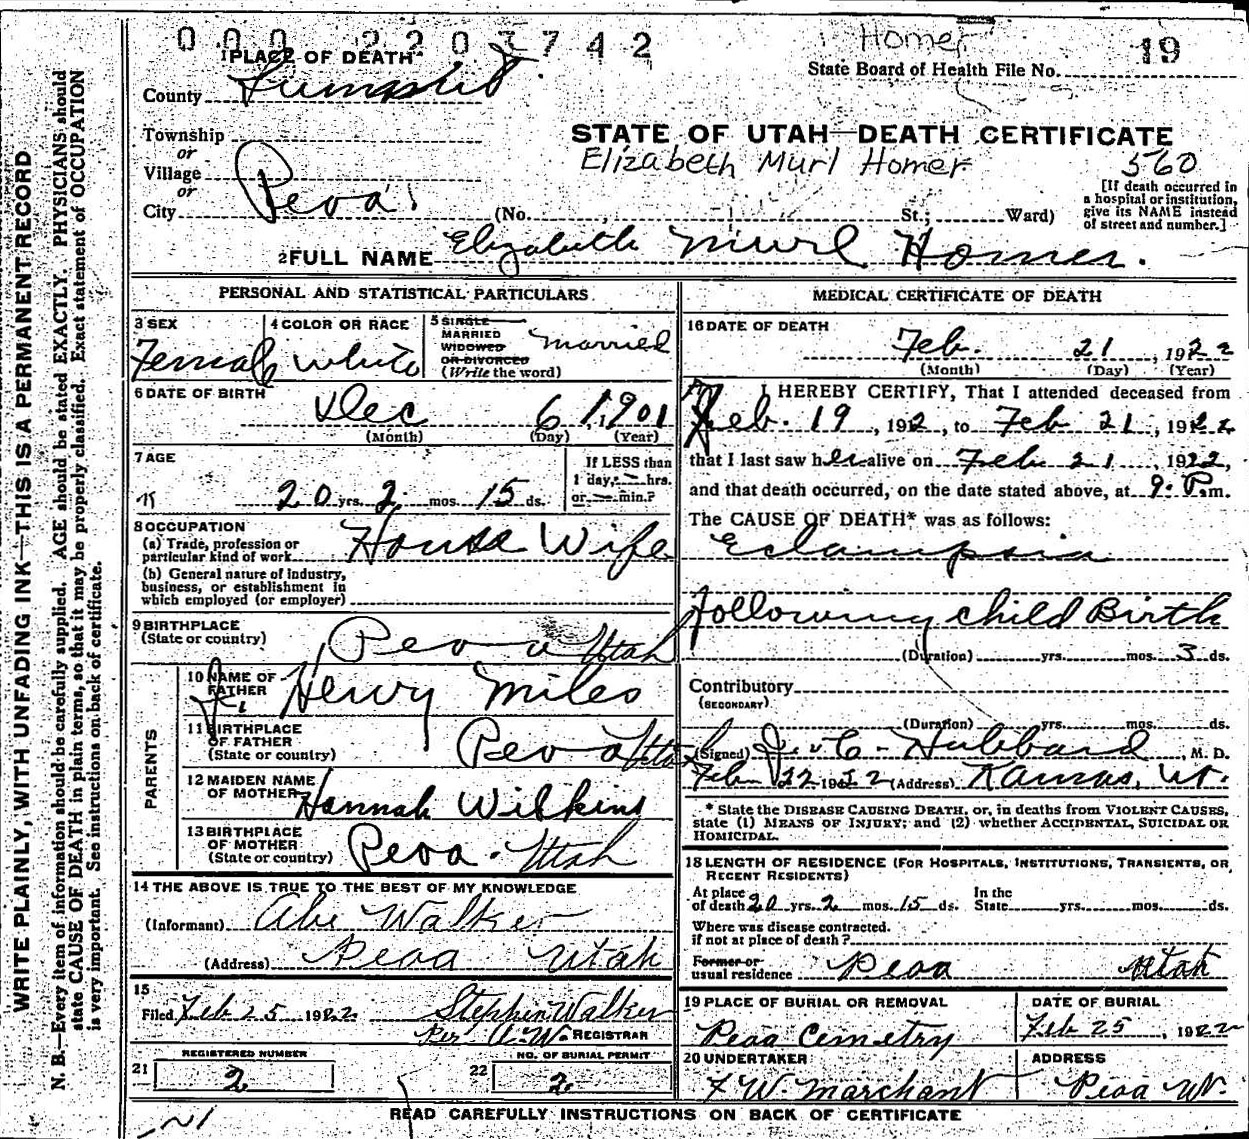 0 0 0 2 2 0 3 7 4 2
Homer
19
1 PLACE OF DEATH
State Board of Health File No.
County Summit
STATE OF UTAH—DEATH CERTIFICATE
Township
or
Village
or
City Peoa
Elizabeth Murl Homer
560
[If death occurred in
a hospital or institution,
give its NAME instead
of street and number.]
(No. St.; Ward)
2 FULL NAME Elizabeth Murl Homer.
PERSONAL AND STATISTICAL PARTICULARS
3 SEX
Female
4 COLOR OR RACE
White
5 SINGLE
MARRIED
WIDOWED
OR DIVORCED
(Write the word)
married
6 DATE OF BIRTH
Dec 6 1901
(Month) (Day) (Year)
7 AGE
20 yrs. 2 mos. 15 ds.
If LESS than
1 day, hrs.
or min.?
8 OCCUPATION
(a) Trade, profession or
particular kind of work
House Wife
(b) General nature of industry,
business, or establishment in
which employed (or employer)
9 BIRTHPLACE
(State or country)
Peoa Utah
PARENTS
10 NAME OF
FATHER
Henry Miles
11 BIRTHPLACE
OF FATHER
(State or country)
Peoa Utah
12 MAIDEN NAME
OF MOTHER
Hannah Wilkins
13 BIRTHPLACE
OF MOTHER
(State or country)
Peoa. Utah
14 THE ABOVE IS TRUE TO THE BEST OF MY KNOWLEDGE
(Informant) Abe Walker
(Address) Peoa Utah
15
Filed Feb 25 1922 Stephen Walker
Per A.W. REGISTRAR
REGISTERED NUMBER
21 2
NO. OF BURIAL PERMIT
22 2
MEDICAL CERTIFICATE OF DEATH
16 DATE OF DEATH
Feb. 21, 1922
(Month) (Day) (Year)
17 I HEREBY CERTIFY, That I attended deceased from
Feb. 19, 192, to Feb 21, 1922
that I last saw her alive on Feb 21, 1922,
and that death occurred, on the date stated above, at 9 P.m.
The CAUSE OF DEATH* was as follows:
Eclampsia
following child Birth
(Duration) yrs. mos. 3 ds.
Contributory
(SECONDARY)
(Duration) yrs. mos. ds.
(Signed) Hubbard, M. D.
Feb 22 1922 (Address) Kamas, Ut.
* State the DISEASE CAUSING DEATH, or, in deaths from VIOLENT CAUSES,
state (1) MEANS OF INJURY; and (2) whether ACCIDENTAL, SUICIDAL OR
HOMICIDAL.
18 LENGTH OF RESIDENCE (FOR HOSPITALS, INSTITUTIONS, TRANSIENTS, OR
RECENT RESIDENTS)
At place
of death 20 yrs. 2 mos. 15 ds.
In the
State yrs. mos. ds.
Where was disease contracted.
if not at place of death?
Former or
usual residence Peoa Utah
19 PLACE OF BURIAL OR REMOVAL
Peoa Cemetry
DATE OF BURIAL
Feb 25, 1922
20 UNDERTAKER
F W Marchant
ADDRESS
Peoa Ut.
READ CAREFULLY INSTRUCTIONS ON BACK OF CERTIFICATE
WRITE PLAINLY, WITH UNFADING INK—THIS IS A PERMANENT RECORD
N. B.—Every item of information should be carefully supplied. AGE should be stated EXACTLY. PHYSICIANS should
state CAUSE OF DEATH in plain terms, so that it may be properly classified. Exact statement of OCCUPATION
is very important. See instructions on back of certificate.